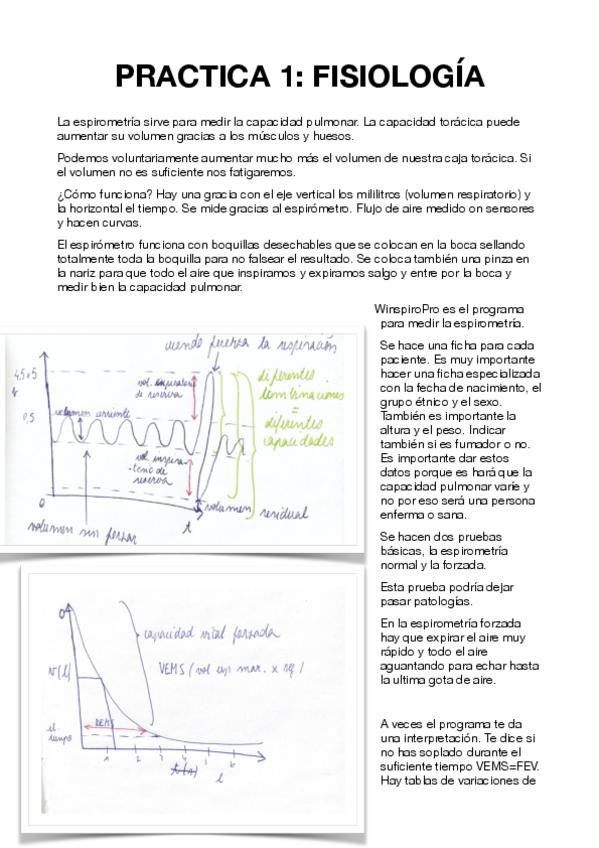 PRACTICA 1: FISIOLOGÍA
La espirometría sirve para medir la capacidad pulmonar. La capacidad torácica puede
aumentar su volumen gracias a los músculos y huesos.
Podemos voluntariamente aumentar mucho más el volumen de nuestra caja torácica. Si
el volumen no es suficiente nos fatigaremos.
¿Cómo funciona? Hay una gracia con el eje vertical los mililitros (volumen respiratorio) y
la horizontal el tiempo. Se mide gracias al espirómetro. Flujo de aire medido on sensores
y hacen curvas.
El espirómetro funciona con boquillas desechables que se colocan en la boca sellando
totalmente toda la boquilla para no falsear el resultado. Se coloca también una pinza en
la nariz para que todo el aire que inspiramos y expiramos salgo y entre por la boca y
medir bien la capacidad pulmonar.
WinspiroPro es el programa
para medir la espirometría.
Se hace una ficha para cada
paciente. Es muy importante
hacer una ficha especializada
con la fecha de nacimiento, el
grupo étnico y el sexo.
También es importante la
altura y el peso. Indicar
también si es fumador o no.
Es importante dar estos
datos porque es hará que la
capacidad pulmonar varíe y
no por eso será una persona
enferma o sana.
Se hacen dos pruebas
básicas, la espirometría
normal y la forzada.
Esta prueba podría dejar
pasar patologías.
En la espirometría forzada
hay que expirar el aire muy
rápido y todo el aire
aguantando para echar hasta
la ultima gota de aire.
A veces el programa te da
una interpretación. Te dice si
no has soplado durante el
suficiente tiempo VEMS=FEV.
Hay tablas de variaciones de
fuerza la respiración
4,5 o 5
0,5
0
vol.
de reserva
volumen corriente
vol.
reserva
diferentes
=
diferentes
capacidades
volumen residual
volumen sin forzar
t
capacidad vital forzada
VEMS (vol esp max. x
v(l)
el
tiempo
1 2 3 4 5 6
t